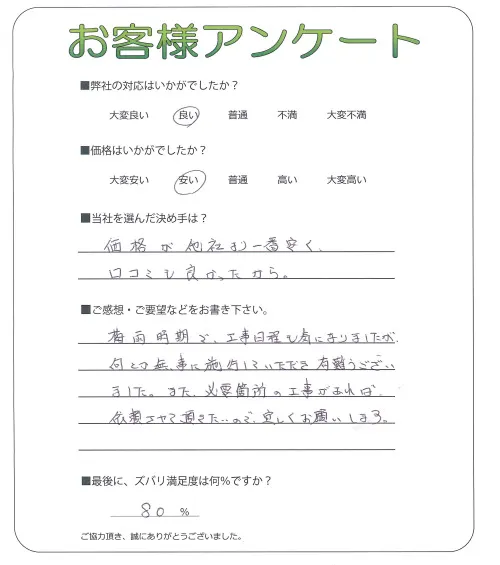 お客様アンケート
■弊社の対応はいかがでしたか？
大変良い 良い 普通 不満 大変不満
■価格はいかがでしたか？
大変安い 安い 普通 高い 大変高い
■当社を選んだ決め手は？
価格が他社より一番安く、
口コミも良かったから。
■ご感想・ご要望などをお書き下さい。
梅雨時期で、工事日程も気になりましたが、
何とか無事に施工していただき有難うござい
ました。また、必要箇所の工事があれば、
依頼させて頂きたいので、宜しくお願いします。
■最後に、ズバリ満足度は何％ですか？
80 ％
ご協力頂き、誠にありがとうございました。